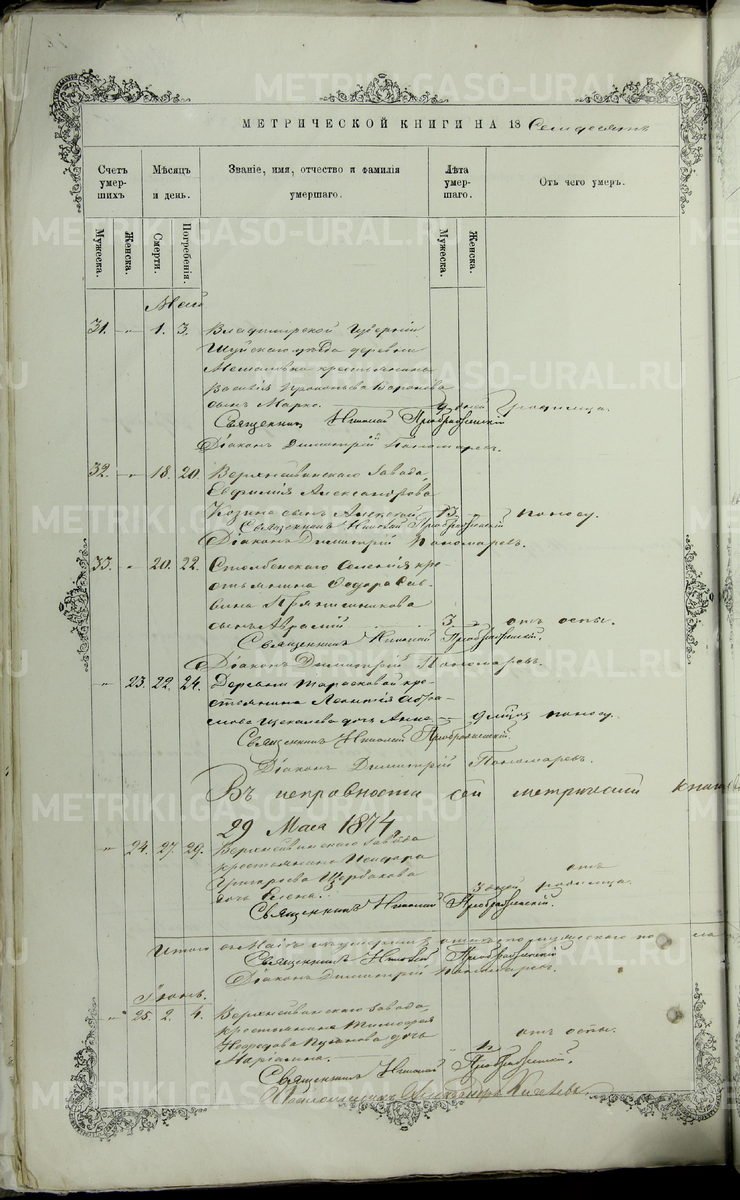 МЕТРИЧЕСКОЙ КНИГИ НА 18 Семидесять
Счетъ умер-шихъ
Мѣсяцъ и день.
Званіе, имя, отчество и фамилія умершаго.
Лѣта умер-шаго.
Отъ чего умеръ.
Мужеска.
Женска.
Смерти.
Погребенія.
Мужеска.
Женска.
Май
31. - 1. 3. Владимірской Губерніи
Шуйскаго уѣзда деревни
крестьянина
Василія Прокопьева
сынъ Марко. родимца.
Священникъ Николай Преображенскій
Діаконъ Димитрій Пономаревъ.
32. - 18. 20. завода
Александрова
Козина сынъ Алексѣй 13 поносу.
Священникъ Николай Преображенскій
Діаконъ Димитрій Пономаревъ.
33. - 20. 22. Столбенскаго Селенія кре-
стьянина Ѳедора Сав-
вина Прянишникова
сынъ Аврамій 3 отъ оспы.
Священникъ Николай Преображенскій.
Діаконъ Димитрій Пономаревъ.
- 23. 22. 24. Деревни Тарасковой кре-
стьянина Леонтія Абра-
мова дочь Анна 9 поносу.
Священникъ Николай Преображенскій.
Діаконъ Димитрій Пономаревъ.
Въ исправности сей метрической книги
29 Мая 1874
- 24. 27. 29. завода
крестьянина
Григорьева Щербакова отъ
дочь Елена. 3 дней родимца.
Священникъ Николай Преображенскій.
Итого въ Маѣ умершихъ мужескаго по
Священникъ Николай Преображенскій
Діаконъ Димитрій Пономаревъ.
Іюнь.
- 25. 2. 4. завода,
крестьянина Тимофея
дочь отъ оспы.
Маріамна.
Священникъ Николай Преображенскій.
Псаломщикъ Александръ Киселевъ
METRIKI.GASO-URAL.RU